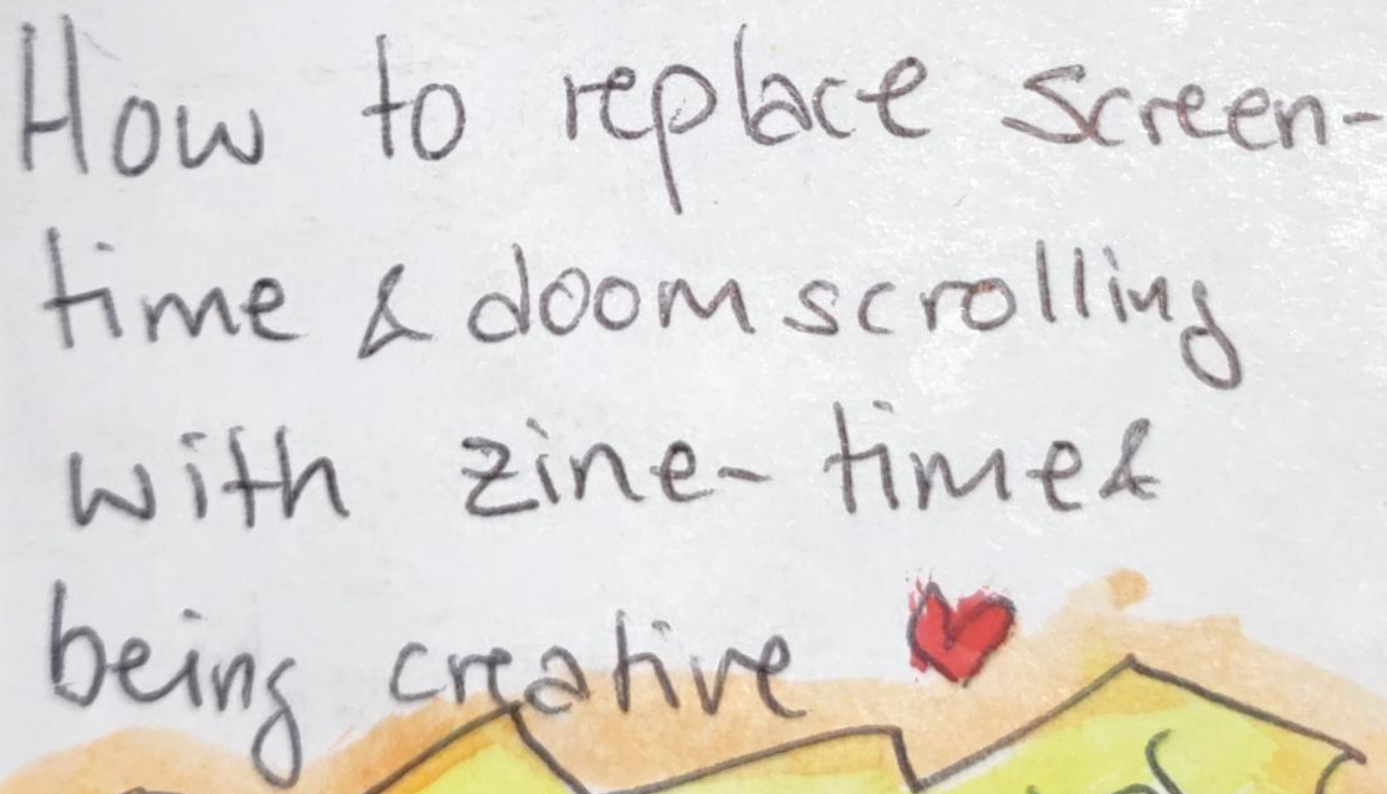 How to replace screen-
time & doomscrolling
with zine-time &
being creative